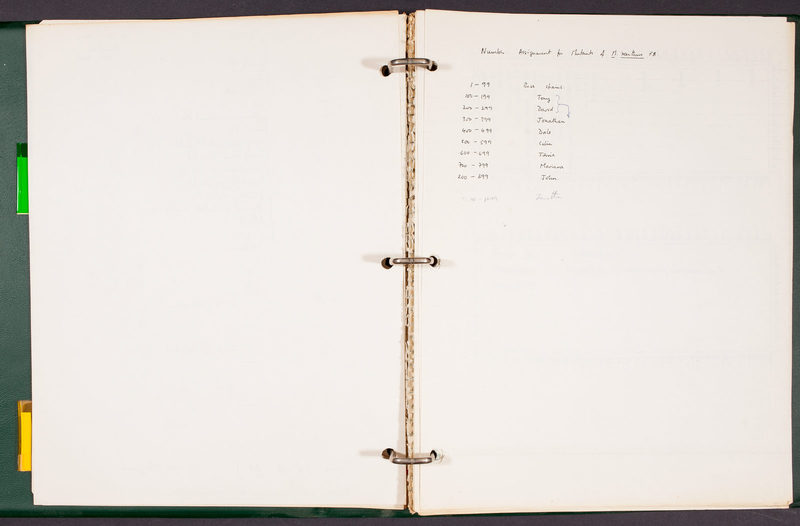 Number Assignment for Mutants of M.
1 – 99
100 – 199 Tony
200 – 299 David
300 – 399 Jonathan
400 – 499 Dale
500 – 599 Colin
600 – 699
700 – 799 Mariana
800 – 899 John